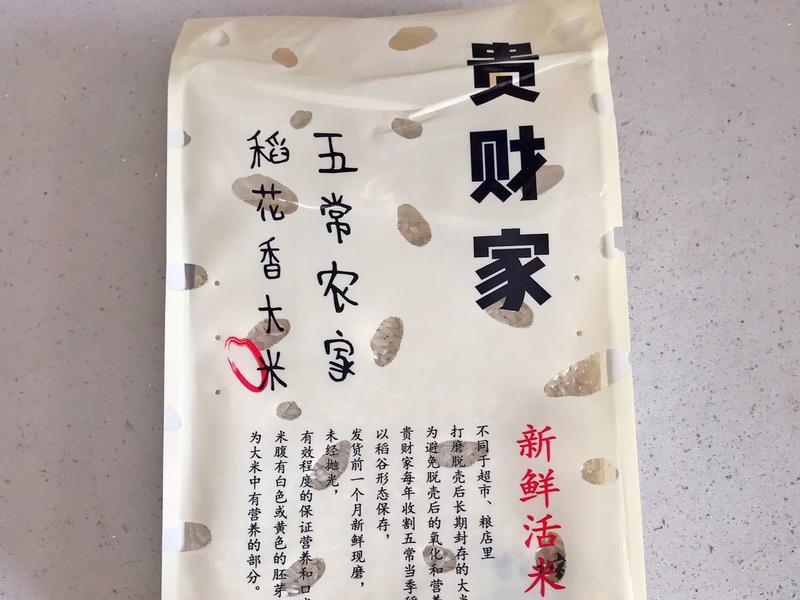 贵财家
五常农家
稻花香大米
新鲜活米
不同于超市、粮店里
打磨脱壳后长期封存的大
为避免脱壳后的氧化和营
贵财家每年收割五常当季
以稻谷形态保存，
发货前一个月新鲜现磨，
未经抛光，
有效程度的保证营养和口
米腹有白色或黄色的胚芽
为大米中有营养的部分。